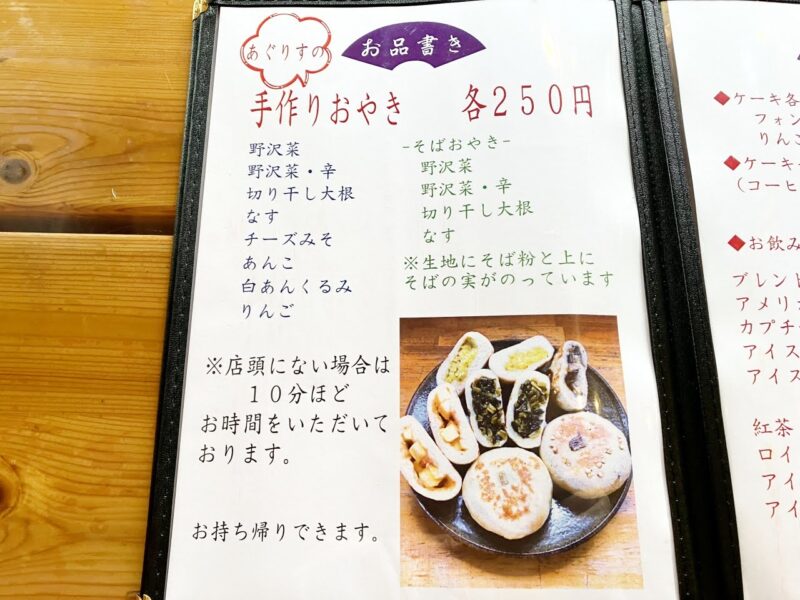 あぐりすの
お品書き
手作りおやき　各250円
野沢菜
野沢菜・辛
切り干し大根
なす
チーズみそ
あんこ
白あんくるみ
りんご
-そばおやき-
野沢菜
野沢菜・辛
切り干し大根
なす
※生地にそば粉と上に
そばの実がのっています
※店頭にない場合は
１０分ほど
お時間をいただいて
おります。
お持ち帰りできます。
◆ケーキ各
フォン
りんご
◆ケーキ
(コーヒ
◆お飲み
ブレンド
アメリカ
カプチ
アイス
アイス
紅茶
ロイ
アイ
アイ